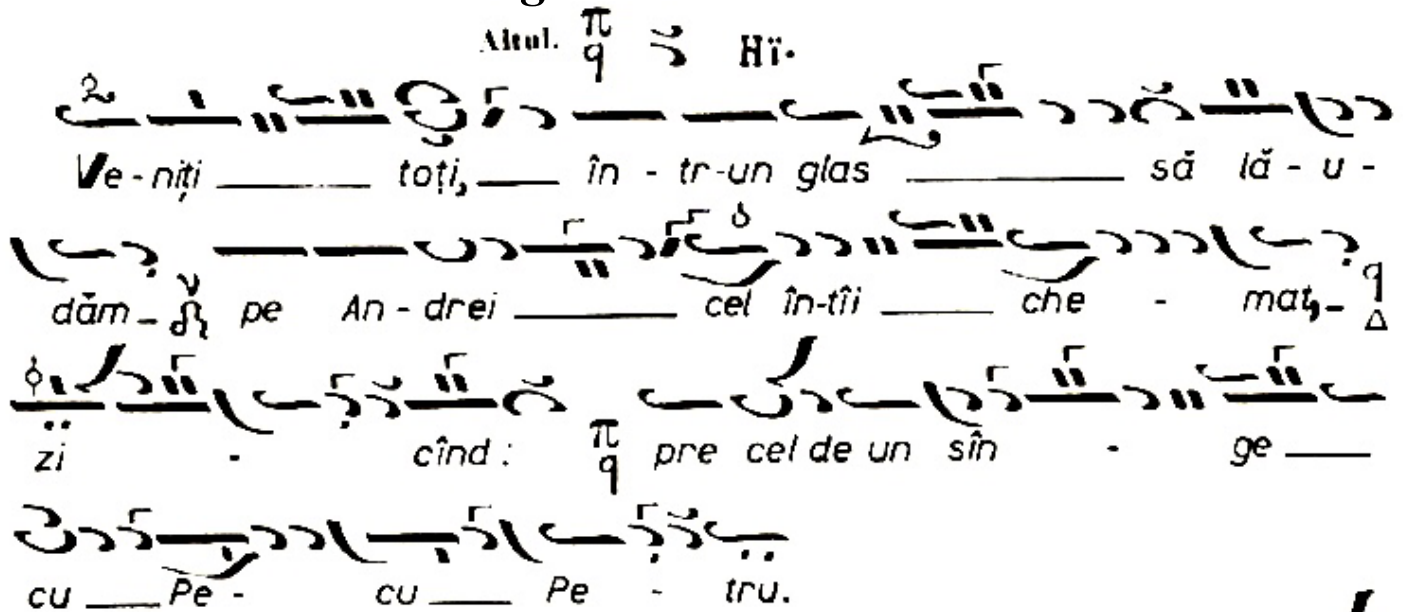 Altul. π q Hï.
Ve-niți ___ toți, ___ în-tr-un glas ___ să lă-u-
dăm_ pe An-drei ___ cel în-tîi ___ che - mat,_ q Δ
zi - cînd: π q pre cel de un sîn - ge ___
cu ___ Pe- cu ___ Pe - tru.